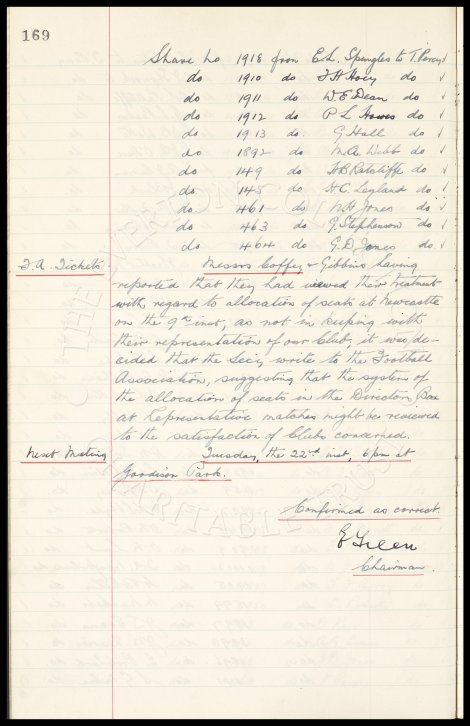 169
Share No 1918 from E.L. Spingles to T. Percy ✓
do 1910 do J H Hoey do ✓
do 1911 do W.E Dean do ✓
do 1912 do P L Howes do ✓
do 1913 do G Hall do ✓
do 1892 do M.A. Webb do ✓
do 149 do H.B. Ratcliffe do ✓
do 145 do H C. Leyland do ✓
do 461 do W.H. Jones do ✓
do 463 do G. Stephenson do ✓
do 464 do G.D. Jones do ✓
F.A. Tickets. Messrs Coffey & Gibbins having
reported that they had viewed their treatment
with regard to allocation of seats at Newcastle
on the 9th inst, as not in keeping with
their representation of our Club, it was de-
cided that the Secy, write to the Football
Association, suggesting that the system of
the allocation of seats in the Directors Box
at Representative matches might be reviewed
to the satisfaction of Clubs concerned.
Next Meeting Tuesday, the 22nd inst, 6pm at
Goodison Park.
Confirmed as correct.
E Green
Chairman.
THE EVERTON
CHARITABLE TRUST